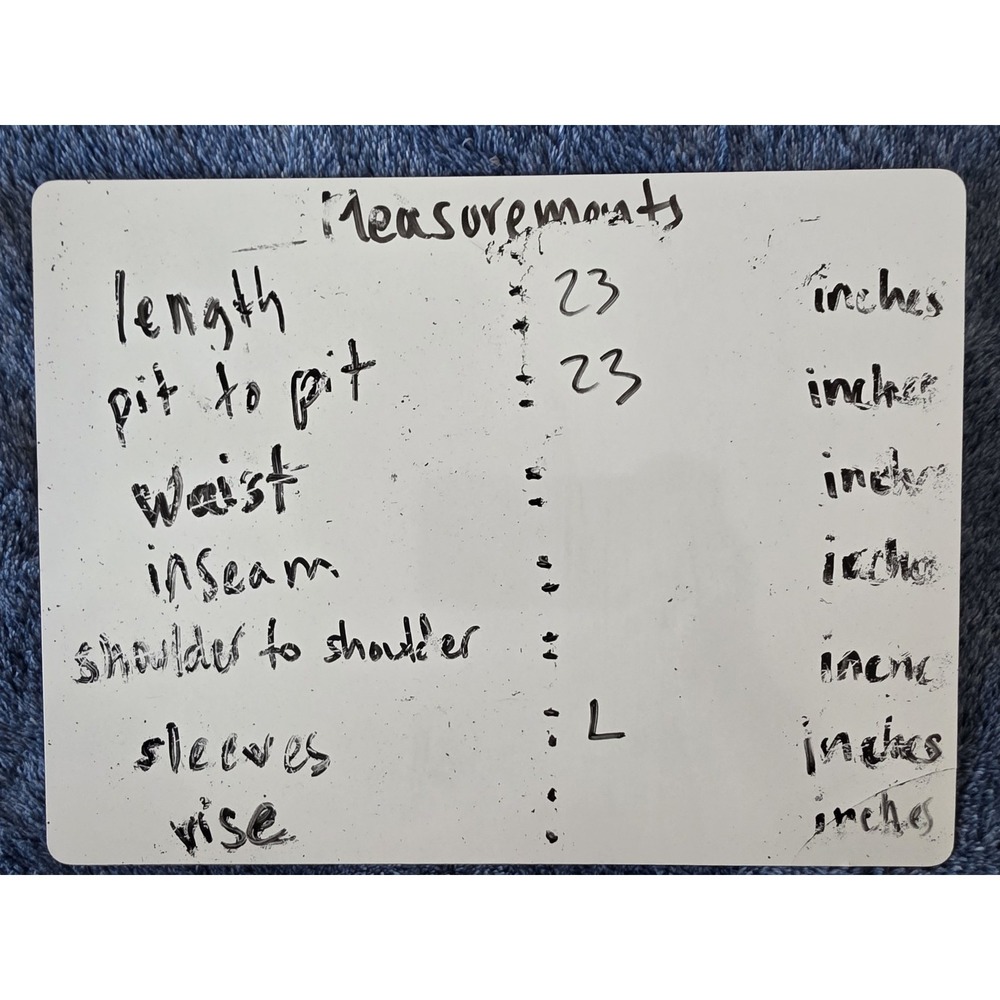 Measurements
length : 23 inches
pit to pit : 23 inches
waist : inches
inseam : inches
shoulder to shoulder : inches
sleeves : L inches
rise : inches